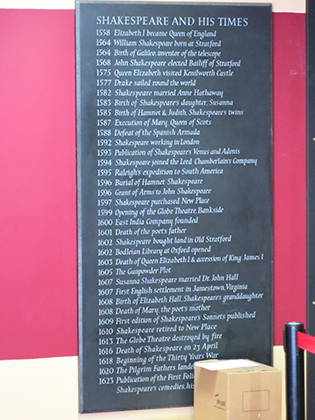 SHAKESPEARE AND HIS TIMES
1558 Elizabeth I became Queen of England
1564 William Shakespeare born at Stratford
1564 Birth of Galileo inventor of the telescope
1568 John Shakespeare elected Bailiff of Stratford
1575 Queen Elizabeth visited Kenilworth Castle
1577 Drake sailed round the world
1582 Shakespeare married Anne Hathaway
1583 Birth of Shakespeare's daughter, Susanna
1585 Birth of Hamnet & Judith, Shakespeare's twins
1587 Execution of Mary, Queen of Scots
1588 Defeat of the Spanish Armada
1592 Shakespeare working in London
1593 Publication of Shakespeare's Venus and Adonis
1594 Shakespeare joined the Lord Chamberlain's Company
1595 Raleigh's expedition to South America
1596 Burial of Hamnet Shakespeare
1596 Grant of Arms to John Shakespeare
1597 Shakespeare purchased New Place
1599 Opening of the Globe Theatre, Bankside
1600 East India Company founded
1601 Death of the poet's father
1602 Shakespeare bought land in Old Stratford
1602 Bodleian Library at Oxford opened
1603 Death of Queen Elizabeth I & accession of King James I
1605 The Gunpowder Plot
1607 Susanna Shakespeare married Dr. John Hall
1607 First English settlement in Jamestown, Virginia
1608 Birth of Elizabeth Hall, Shakespeare's granddaughter
1608 Death of Mary, the poet's mother
1609 First edition of Shakespeare's Sonnets published
1610 Shakespeare retired to New Place
1613 The Globe Theatre destroyed by fire
1616 Death of Shakespeare on 23 April
1618 Beginning of the Thirty Years War
1620 The Pilgrim Fathers
1623 Publication of the First
Shakespeare's comedies,